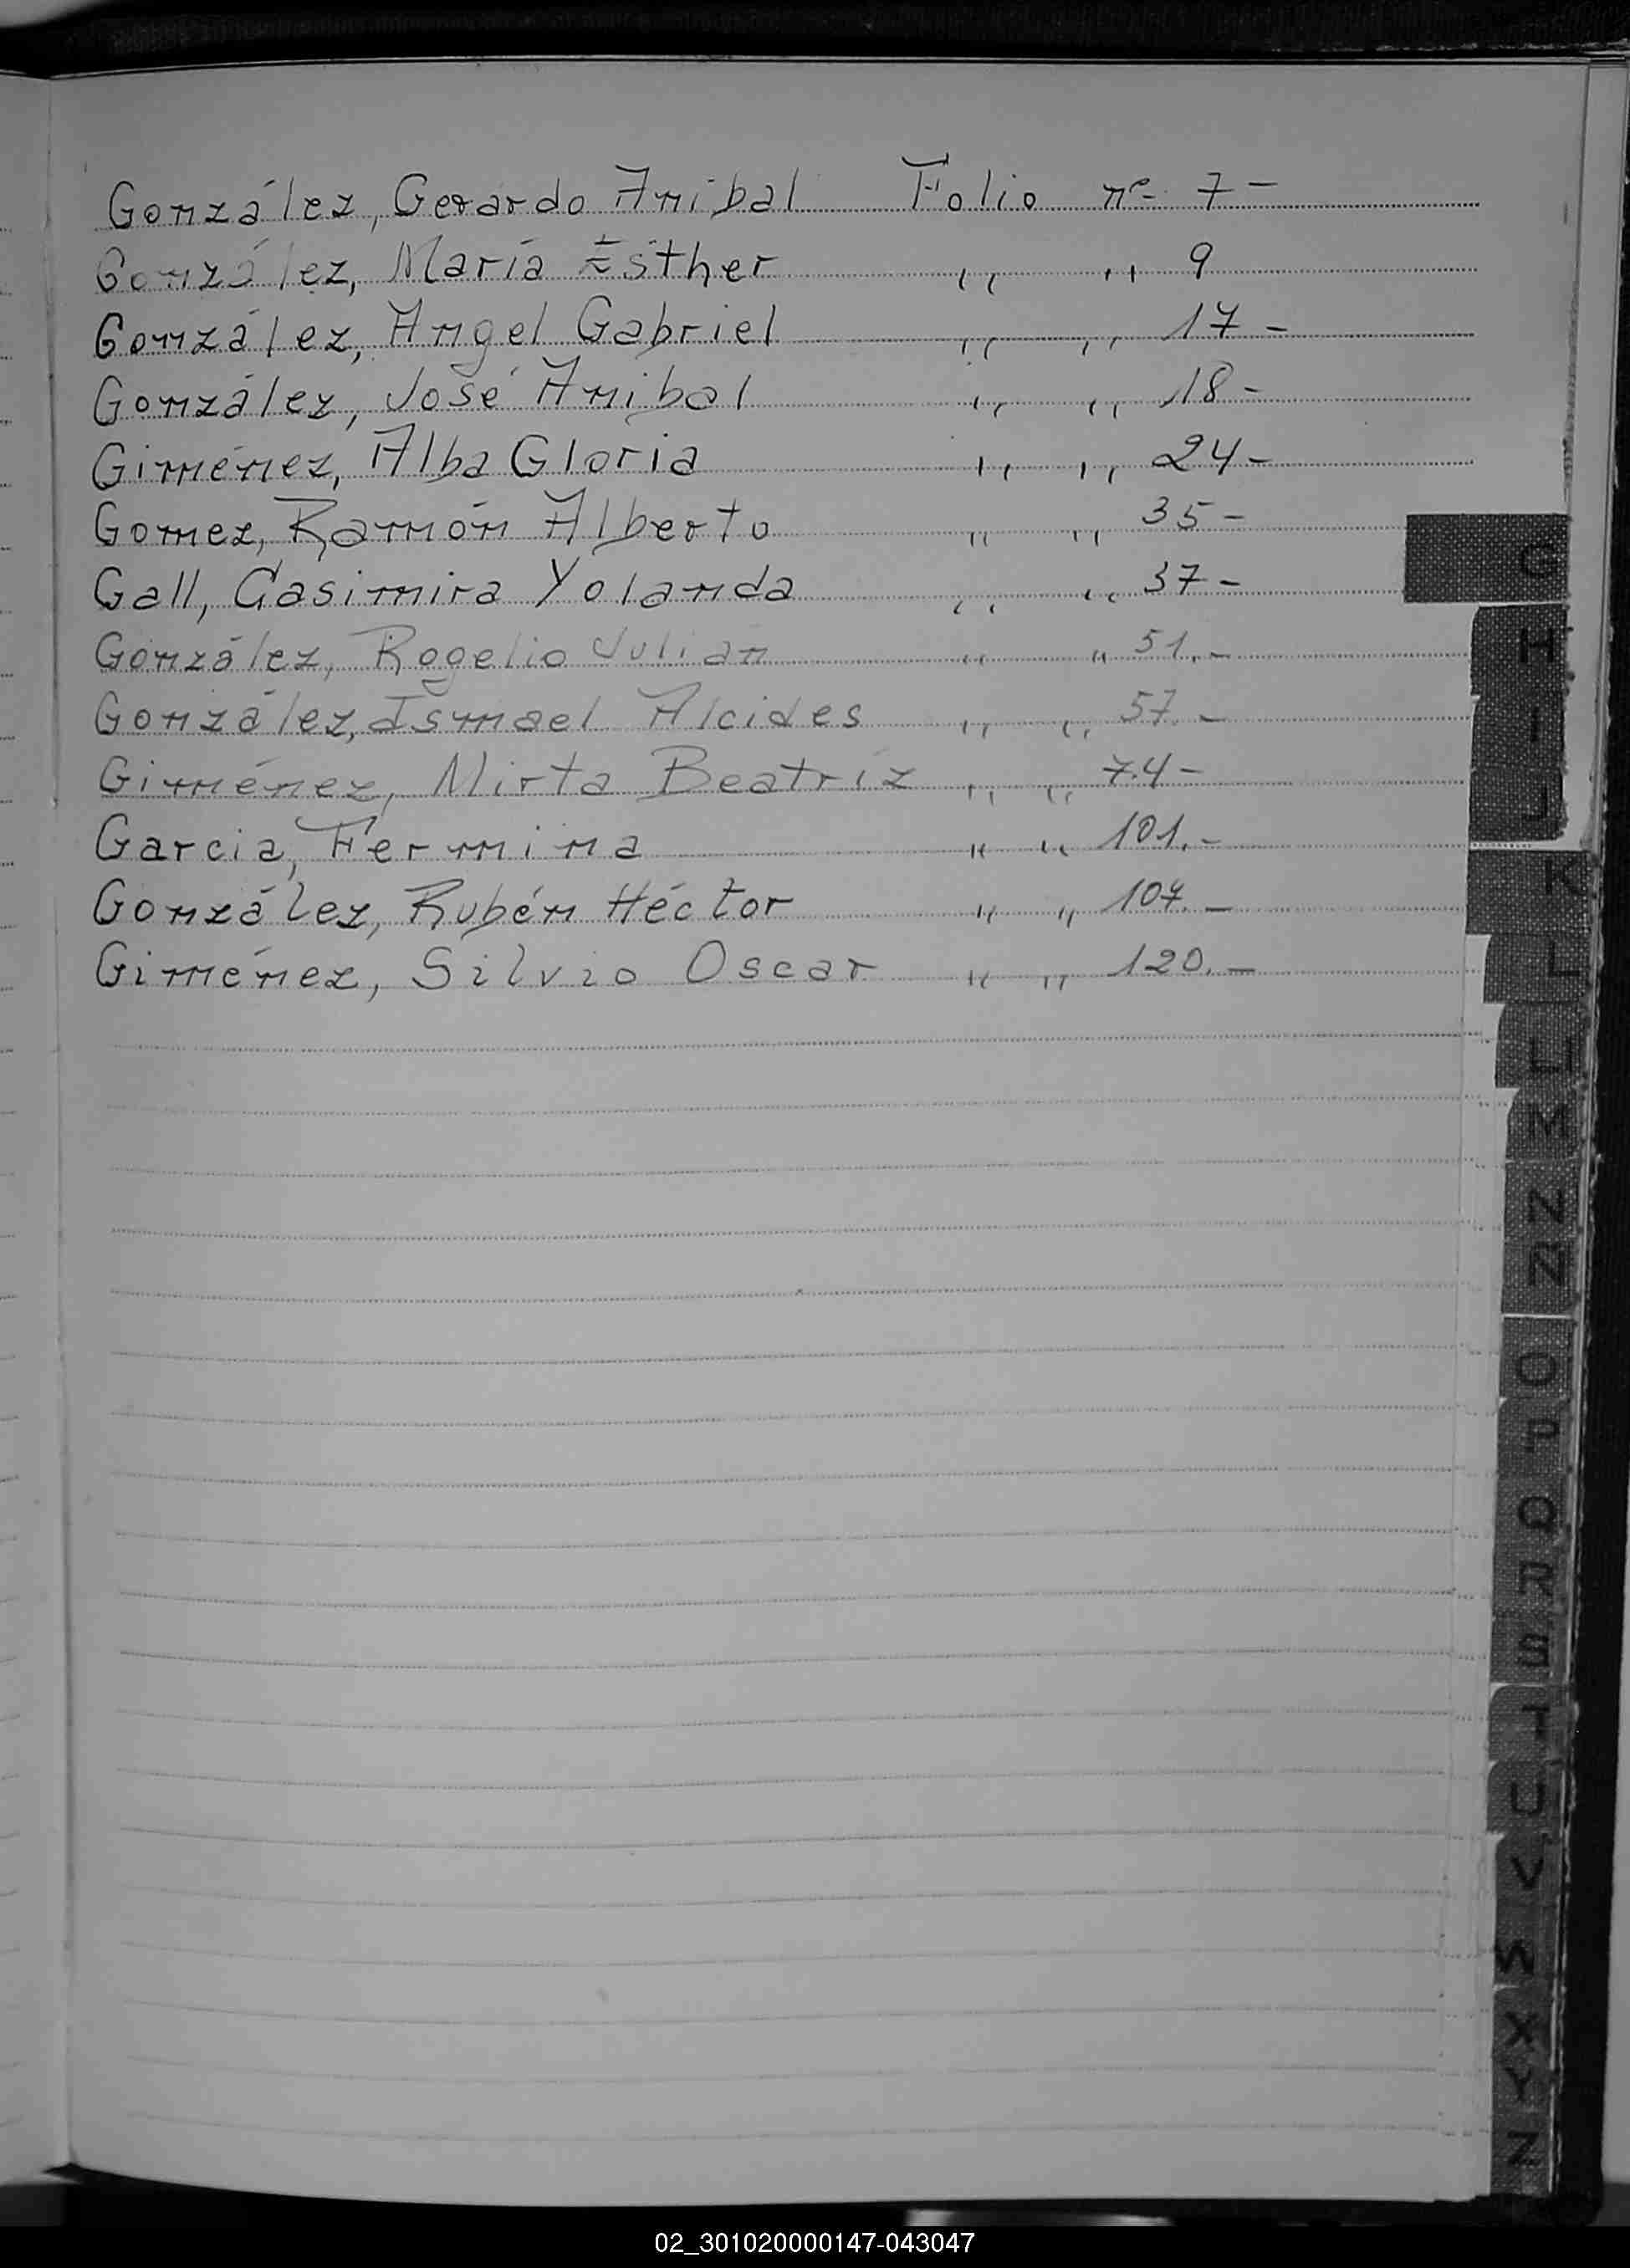 González, Gerardo Anibal Folio nº 7-
González, María Esther ,, ,, 9
González, Angel Gabriel ,, ,, 17-
González, José Anibal ,, ,, 18-
Giménez, Alba Gloria ,, ,, 24-
Gomez, Ramón Alberto ,, ,, 35-
Gall, Casimira Yolanda ,, ,, 37-
González, Rogelio Julian ,, ,, 51.-
González, Ismael Alcides ,, ,, 57.-
Giménez, Mirta Beatríz ,, ,, 74-
Garcia, Fermina ,, ,, 101.-
González, Rubén Héctor ,, ,, 107.-
Giménez, Silvio Oscar ,, ,, 120.-
G
H
I
J
K
L
LL
M
N
Ñ
O
P
Q
R
S
T
U
V
W
X
Y
Z
02_301020000147-043047